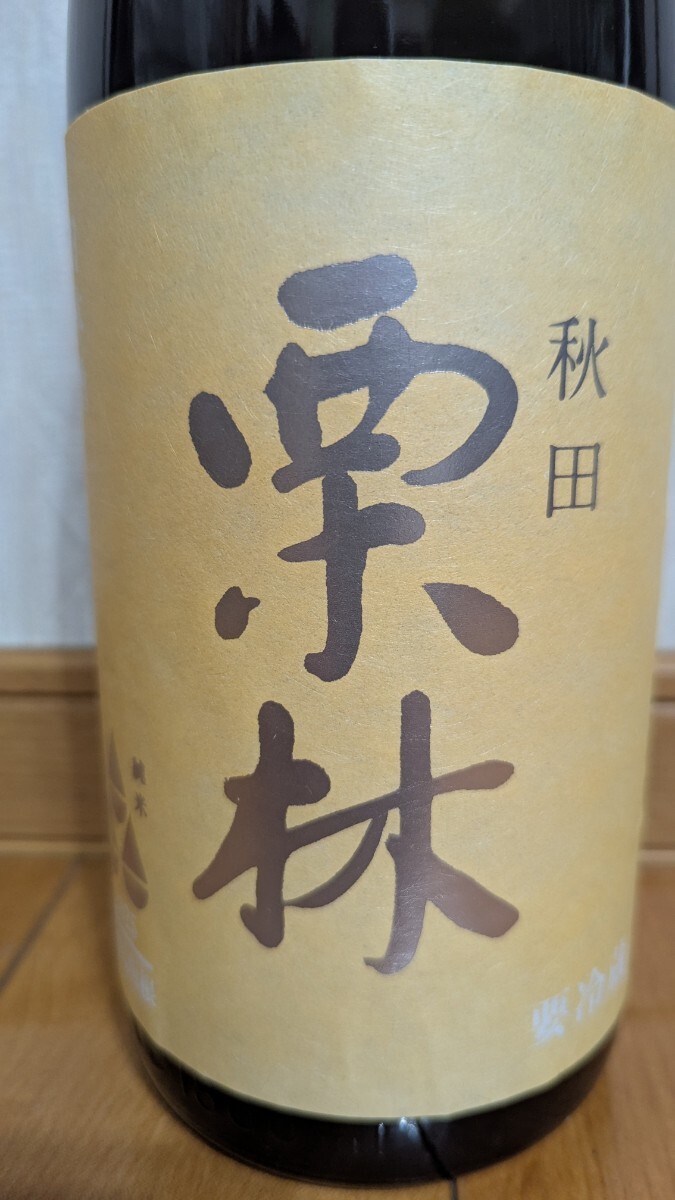 秋田
栗林
純米
要冷